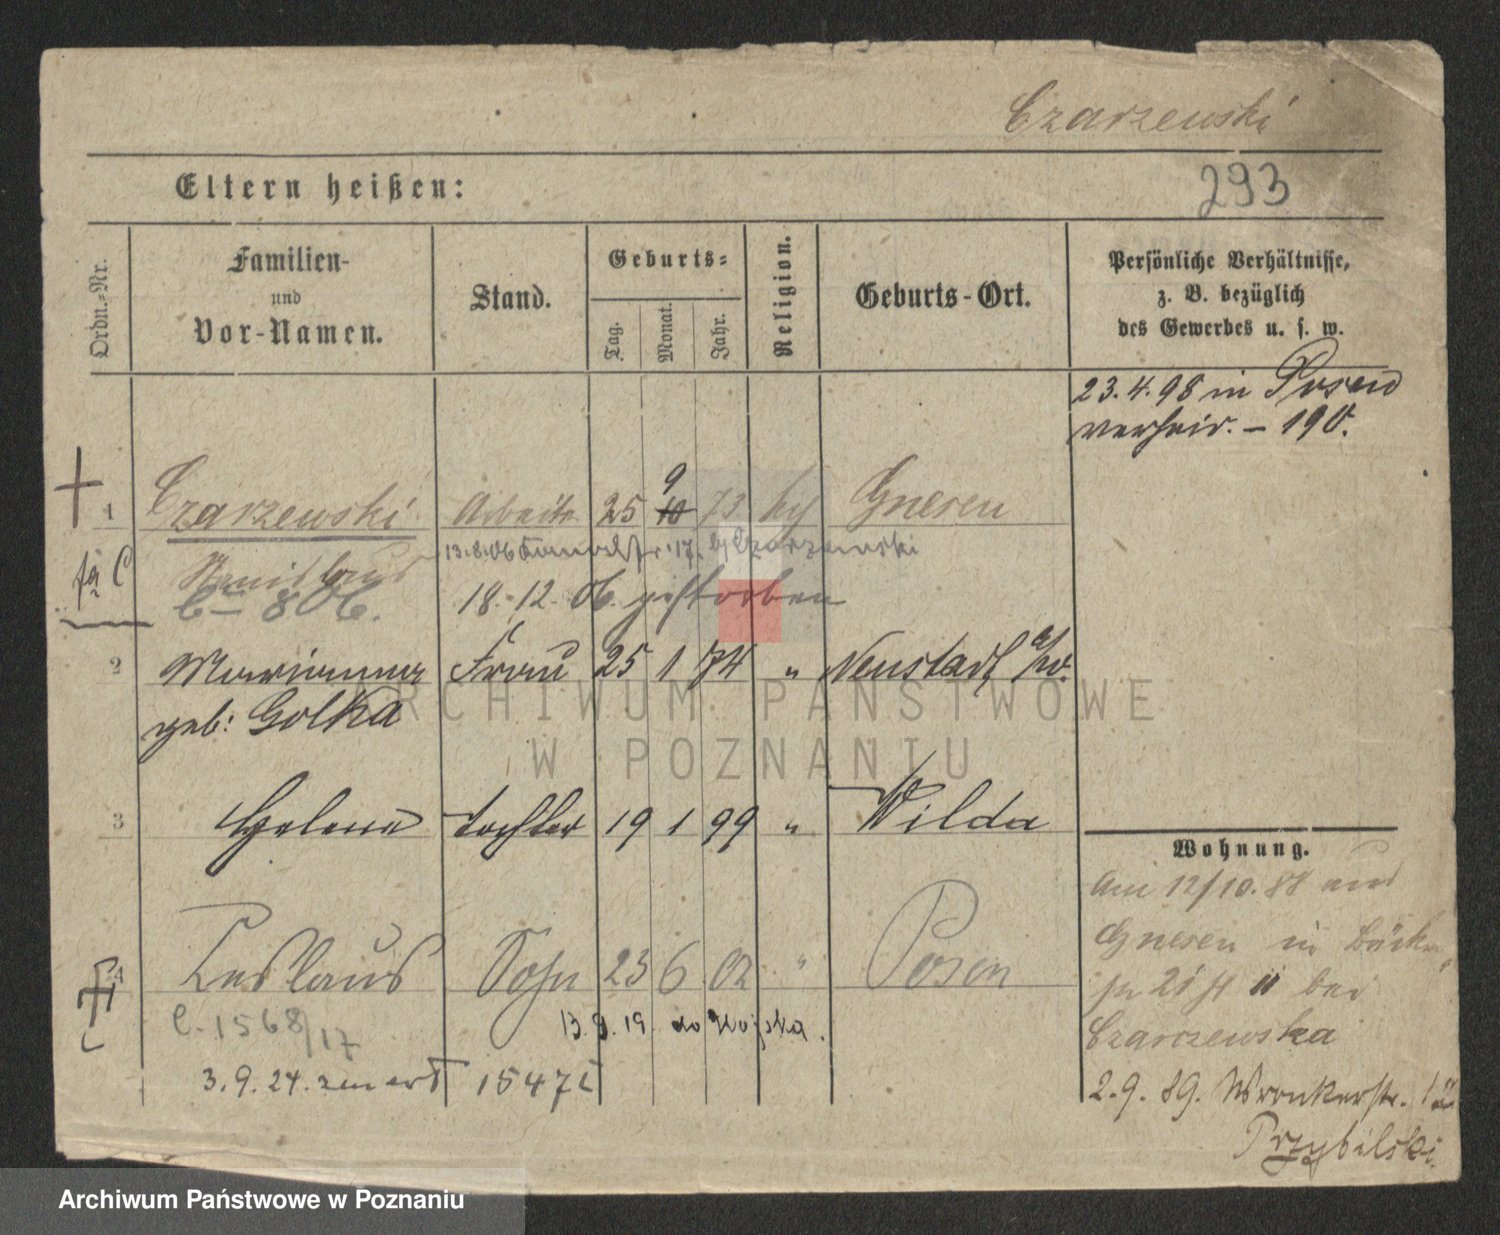 Czarzewski
Eltern heißen:
293
Ordn.-Nr.
Familien-
und
Vor-Namen.
Stand.
Geburts-
Tag.
Monat.
Jahr.
Religion.
Geburts-Ort.
Persönliche Verhältnisse,
z. B. bezüglich
des Gewerbes u. s. w.
23.4.98 in Posen
verheir. - 190.
9
1 Czarzewski Arbeiter 25 10 73 Gnesen
13.8.06 17. Czarzewski
Stanislaus
806. 18.-12. 06. gestorben
2 Marianna Frau 25 1 74 " Neustadt a/W.
geb: Golka
ARCHIWUM PAŃSTWOWE
W POZNANIU
3 Helena Tochter 19 1 99 " Wilda
Wohnung.
Am 12/10. 88 aus
Gnesen in
21 II bei
Czarzewska
4 Ceslaus Sohn 23 6 02 " Posen
C. 1568/17 13.9.19. do Wojska.
3.9.24. zmarł 15472
2.9.89. Wronkerstr.
Przybilski
Archiwum Państwowe w Poznaniu